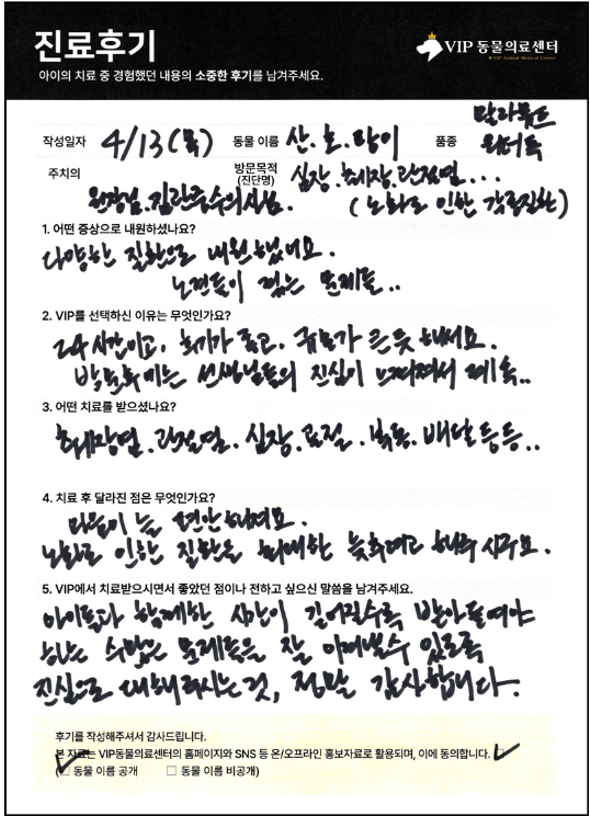 진료후기
아이의 치료 중 경험했던 내용의 소중한 후기를 남겨주세요.
VIP 동물의료센터
VIP Animal Medical Center
작성일자 4/13(목) 동물 이름 산.호.랑이 품종 말라뮤트
주치의 원장님. 수의사님.
방문목적
(진단명)
심장. 췌장. 관절염...
(노화로 인한 각종질환)
1. 어떤 증상으로 내원하셨나요?
다양한 질환으로 내원했어요.
노견들이 겪는 문제들..
2. VIP를 선택하신 이유는 무엇인가요?
24시간이고, 후기가 좋고, 규모가 큰듯 해서요.
선생님들의 진심이 느껴져서 계속..
3. 어떤 치료를 받으셨나요?
췌장염. 관절염. 심장. 등등..
4. 치료 후 달라진 점은 무엇인가요?
마음이 늘 편안해져요.
노화로 인한 질환을 최대한 늦추려고 해주시구요.
5. VIP에서 치료받으시면서 좋았던 점이나 전하고 싶으신 말씀을 남겨주세요.
아이들과 함께한 시간이 길어질수록 받아들여야
하는 수많은 문제들을 잘 이겨낼수 있도록
진심으로 대해주시는 것, 정말 감사합니다.
후기를 작성해주셔서 감사드립니다.
본 자료는 VIP동물의료센터의 홈페이지와 SNS 등 온/오프라인 홍보자료로 활용되며, 이에 동의합니다.
(□ 동물 이름 공개 □ 동물 이름 비공개)